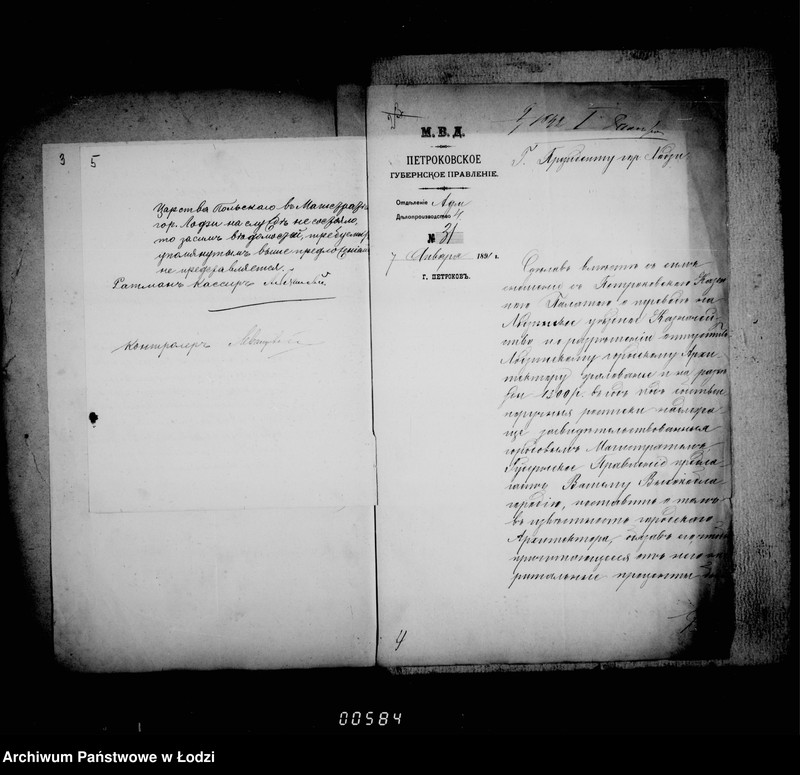 3
5
Царства Польскаго въ Магистратѣ
гор. Лодзи на службѣ не состояло,
то засимъ вѣдомостей, требуемыхъ
упомянутымъ выше предложеніемъ
не представляется.
Ратманъ Кассиръ
Контролеръ
М. В. Д.
ПЕТРОКОВСКОЕ
ГУБЕРНСКОЕ ПРАВЛЕНІЕ.
Отдѣленіе Адм
Дѣлопроизводство 4
№ 31
7 Января 1891 г.
Г. ПЕТРОКОВЪ.
Г. Президенту гор. Лодзи
Сдѣлавъ вмѣстѣ съ симъ
сношеніе съ Петроковскою Казен
ною Палатою о переводѣ на
Лодзинское уѣздное Казначей-
ство и о разрѣшеніи отпустить
Лодзинскому городскому Архи
тектору жалованье и на разъѣ
зды 1500 р. въ годъ подъ собствен
норучныя росписки надлежа
ще засвидѣтельствованныя
городскимъ Магистратомъ
Губернское Правленіе предла
гаетъ Вашему Высокобла
городію, поставить о томъ
въ извѣстность городского
Архитектора,
причитающіеся отъ него
проценты
4
00584
Archiwum Państwowe w Łodzi